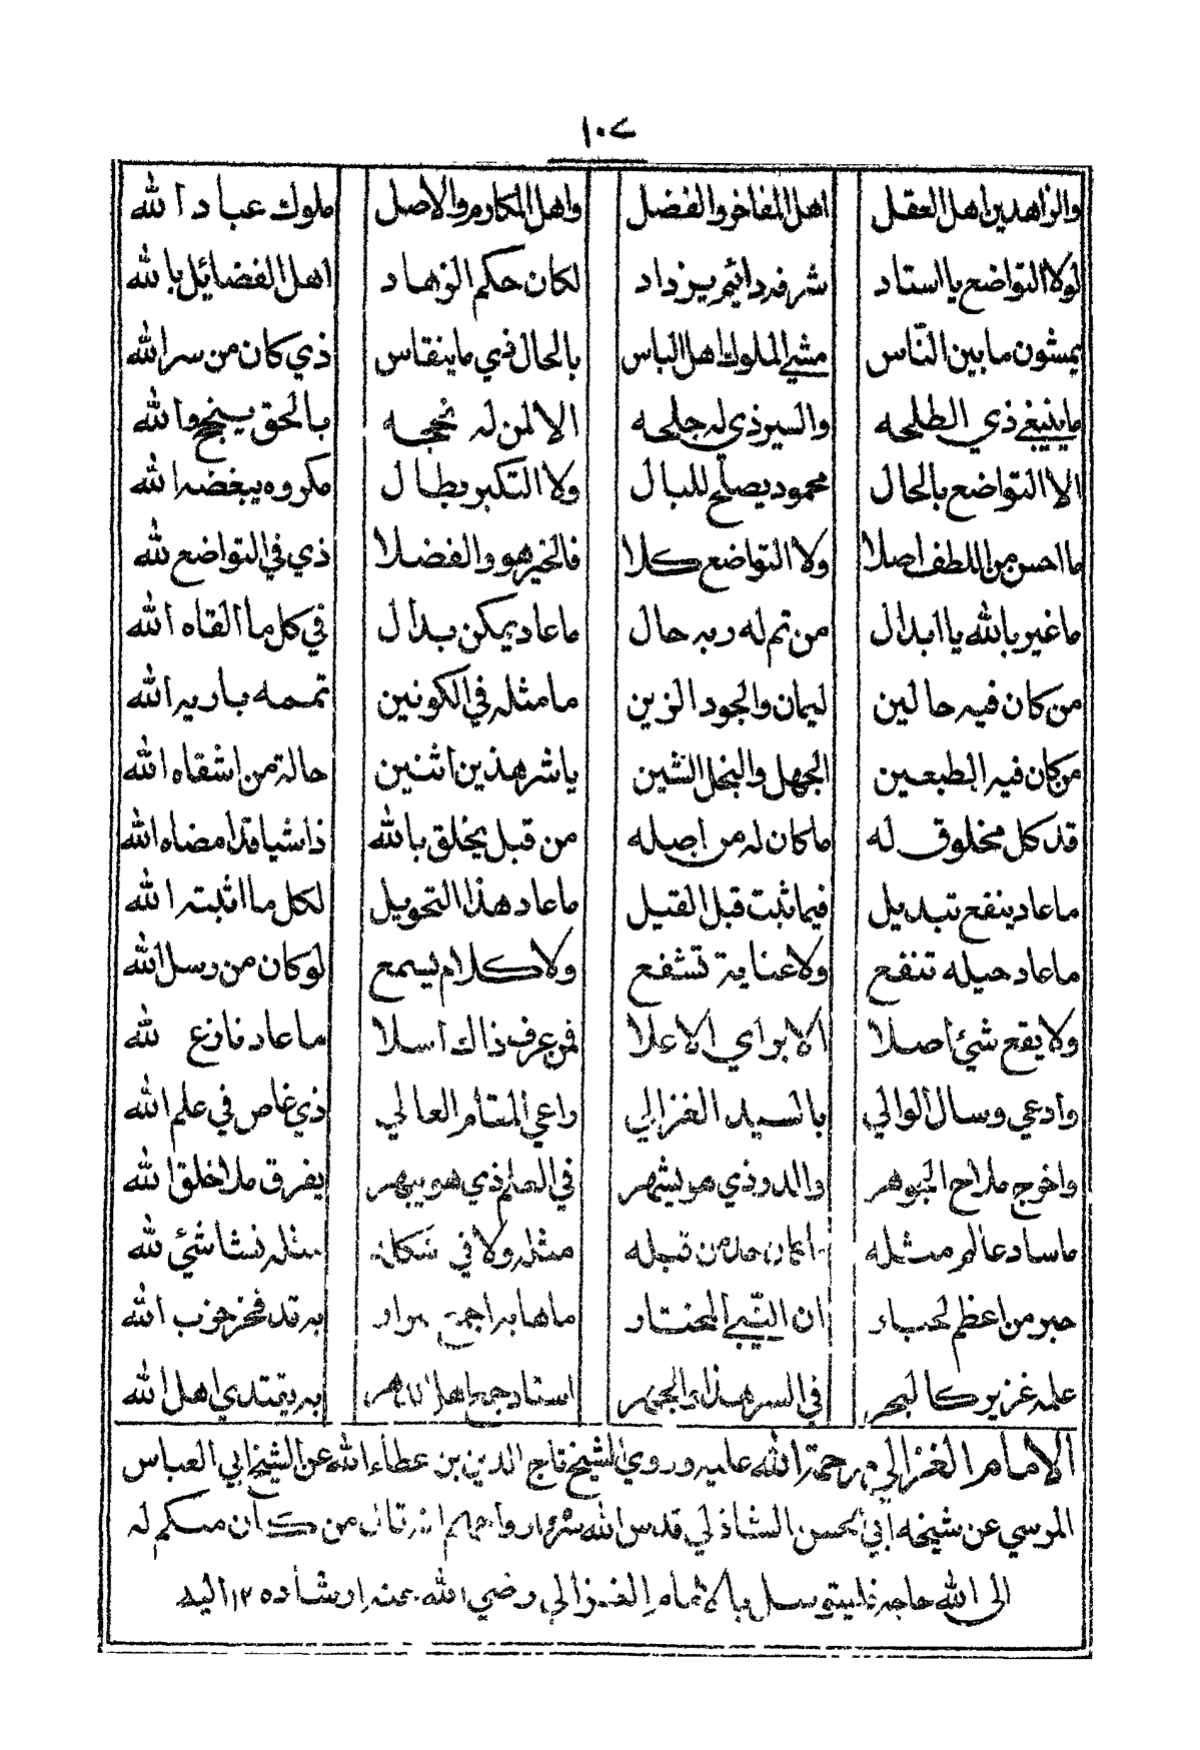 ١٠٧
والزاهدين اهل العقل اهل المفاخر والفضل واهل المكارم والاصل ملوك عباد الله
لولا التواضع يا استاد شرفه دائم يزداد لكان حكم الزهاد اهل الفضايل بالله
يمشون ما بين النّاس مشي الملوك اهل الباس بالحال ذي ما ينقاس ذي كان من سر الله
ما ينبغي ذي الطلحه والسير ذي له جلحه الا لمن له نجحه بالحق ينجح والله
الا التواضع بالحال محمود يصلح للبال ولا التكبر بطال مكروه يبغضه الله
ما احسن من اللطف اصلا ولا التواضع كلا فالخير هو والفضلا ذي في التواضع لله
ما غير بالله يا ابدال من تم له ربه حال ما عاد يمكن بدال في كل ما القاه الله
من كان فيه حالين ليمان والجود الزين ما مثله في الكونين تممه باريه الله
من كان فيه الطبعين الجهل والبخل الشين يا شر هذين اثنين حالة من اشقاه الله
قد كل مخلوق له ما كان له من اصله من قبل يخلق بالله ذا شيا قد امضاه الله
ما عاد ينفع تبديل فيما ثبت قبل القتيل ما عاد هذا التحويل لكل ما اثبته الله
ما عاد حيله تنفع ولا عناية تشفع ولا كلام يسمع لو كان من رسل الله
ولا يقع شئ اصلا الا براي الاعلا فمن عرف ذاك اسلا ما عاد نازع لله
وادعي وسال الوالي بالسيد الغزالي راعي المقام العالي ذي غاص في علم الله
واخرج ملاح الجوهر والدر ذي هو يشهر في العلم ذي هو يبهر يفرق ملا خلق الله
ما ساد عالم مثله من قبله مثله ولا في شكله مثله نشا شئ لله
حبر من اعظم لحبار ان النّبي المختار ما هابه به قد فخر حزب الله
علمه غزير كالبحر في السر هذا والجهر استاد جميع اهل الدهر به يقتدي اهل الله
الامام الغزالي رحمة الله عليه وروي الشيخ تاج الدين بن عطاء الله عن الشيخ ابي العباس
المرسي عن شيخه ابي الحسن الشاذلي قدس الله من كان منكم له
الى الله حاجة فليتوسل بالامام الغزالي رضي الله عنه ارشاده ١٣ اليه